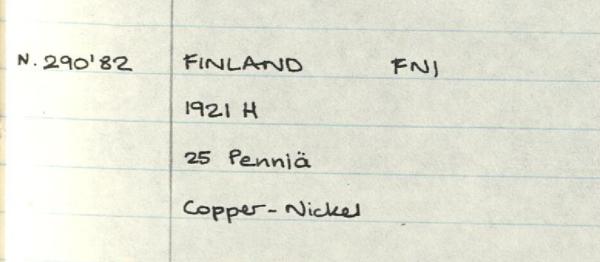 N. 290'82 FINLAND FNI
1921 H
25 Penniä
Copper-Nickel